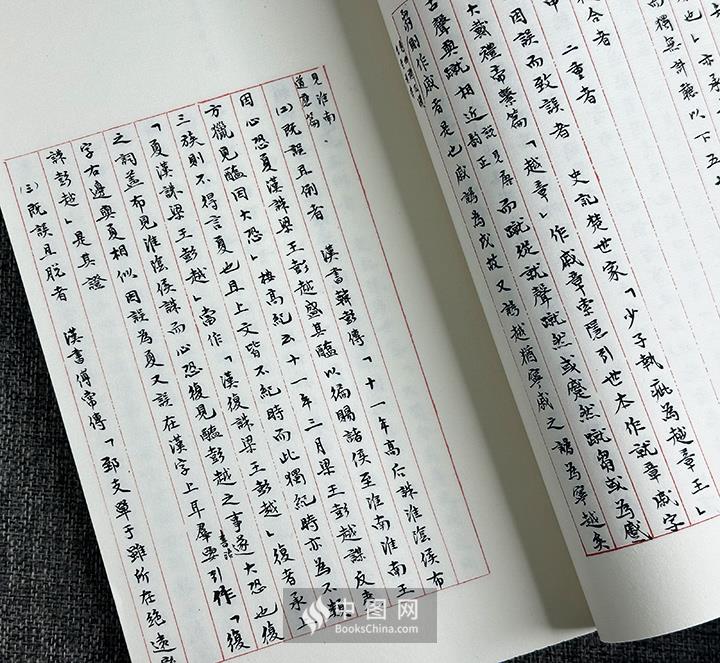 也」亦承
而獨無許聽以下五
合者
二重者
因誤而致誤者　史記楚世家「少子執疵為越章王」
大戴禮帝繫篇「越章」作戚章索隱引世本作就章戚字
古聲與蹴相近說見而蹴從就聲蹴然或蹙然蹴或為慼
則作戚者是也戚譌為戉故又譌越猶甯戚之譌為甯越矣
見淮南
道應篇
(2)既誤且倒者　漢書韓彭傳「十一年高后誅淮陰侯布
因心恐夏漢誅梁王彭越盛其醢以徧賜諸侯至淮南淮南王
方獵見醢因大恐」按高紀五十一年三月梁王彭越謀反夷
三族則不得言夏也且上文皆不紀時而此獨紀時亦為不類
「夏漢誅梁王彭越」當作「漢復誅梁王彭越」復者承上
之詞蓋布見淮陰侯誅而心恐復見醢彭越之事遂大恐也復
字右邊與夏相似因誤為夏又誤在漢字上耳羣書治要引作「復
誅彭越」是其證
(3)既誤且脫者　漢書傅常傳「郅支單于雖所在絕遠
中图网
BooksChina.com